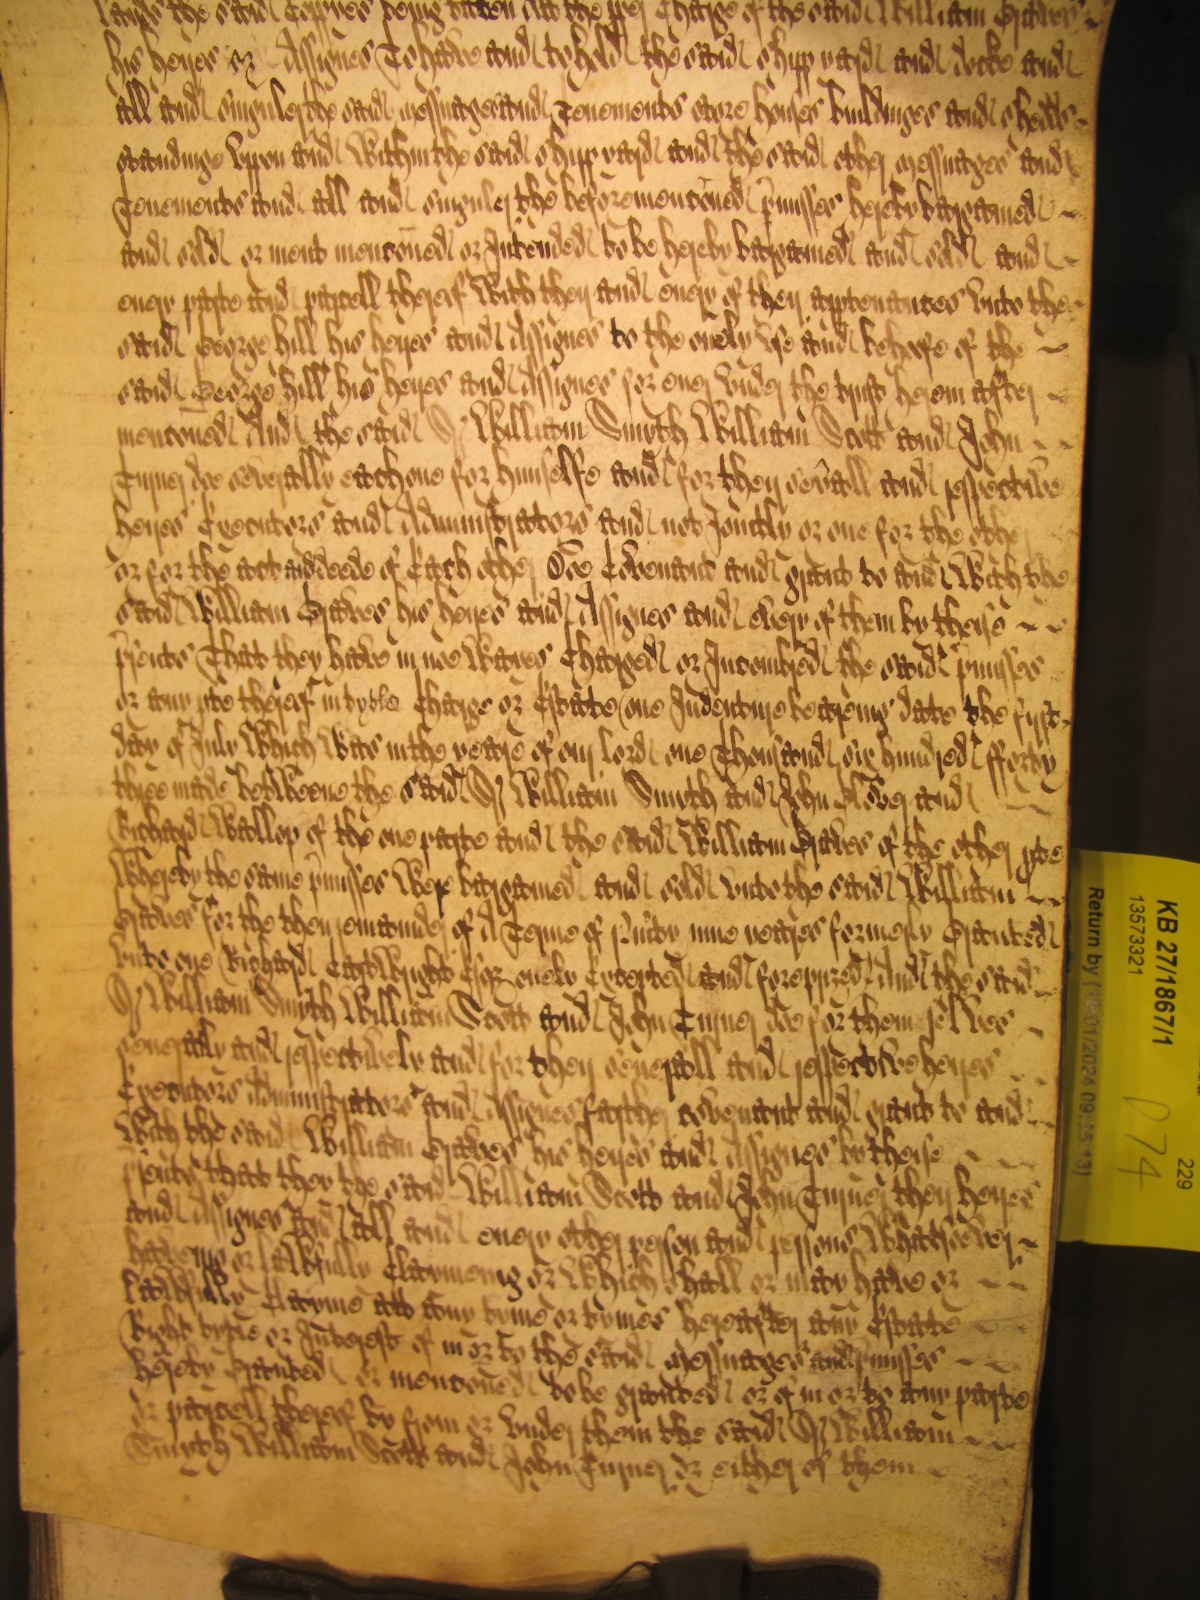 Lands the said Copies being taken att the p̱er Charge of the said William Graves
his heyres or Assignes To have and to hold the said shipp yard and docke and
all and singuler the said messuages and Tenements store houses buildinges and shedds
standinge upon and within the said shipp yard and the said other messuages and
Tenements and all and singuler the beforemenconed p̱misses hereby bargained
and sold or ment menconed or Intended to be hereby bargained and sold and
every parte and parcell thereof With their and every of their apptenances unto the
said George Hill his heyres and Assignes to the onely use and behoofe of the
said George Hill his heyres and Assignes for ever under the trust herein after
menconed And the said Sr William Smyth William Scott and John
Turner doe severally each one for himselfe and for their sevall and respective
heyres Executors and Administrators and not Joyntly or one for the other
or for the act and deede of Each other Doe Covenant and grant to and With the
said William Graves his heyres and Assignes and every of them by theise
p̱sents That they have in noe Wayes Charged or Incombred the said p̱misses
or any pte thereof in tytle Charge or Estate one Indenture beareing date the first
day of July Which Was in the yeare of our Lord one Thousand six hundred fforty
three made betweene the said Sr William Smyth and John and
Richard Waller of the one parte and the said William Graves of the other pte
Whereby the same p̱misses Were bargained and sold unto the said William
Graves for the then remainder of A Terme of ninty nine yeares formerly Graunted
unto one Richard Esqr onely Excepted and foreprized And the said
Sr William Smyth William Scott and John Turner doe for themselves
severally and respectively and for their severall and respective heyres
Executors Administrators and Assignes further covenant and grant to and
With the said William Graves his heyres and Assignes by theise
p̱sents that they the said William Scott and John Turner their heyres
and Assignes and all and every other person and persons Whatsoever
haveing or lawfully Claymeing or Which shall or may have or
lawfully Clayme att any tyme or tymes hereafter any Estate
Right tytle or Interest of in or to the said messuages and p̱misses
hereby Graunted or menconed to be graunted or of in or to any parte
or parcell thereof by from or under them the said Sr William
Smyth William Scott and John Turner or either of them
KB 27/1867/1
13573321
Return by (
229
D 74